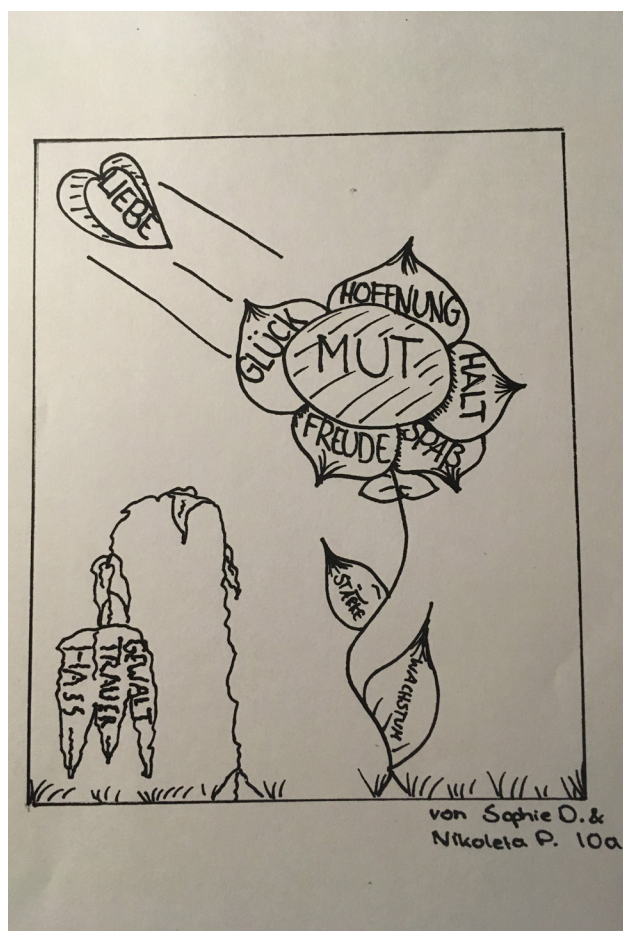 LIEBE
HOFFNUNG
GLÜCK
MUT
HALT
FREUDE
SPAß
STÄRKE
WACHSTUM
HASS
TRAUER
GEWALT
von Sophie D. &
Nikoleta P. 10a